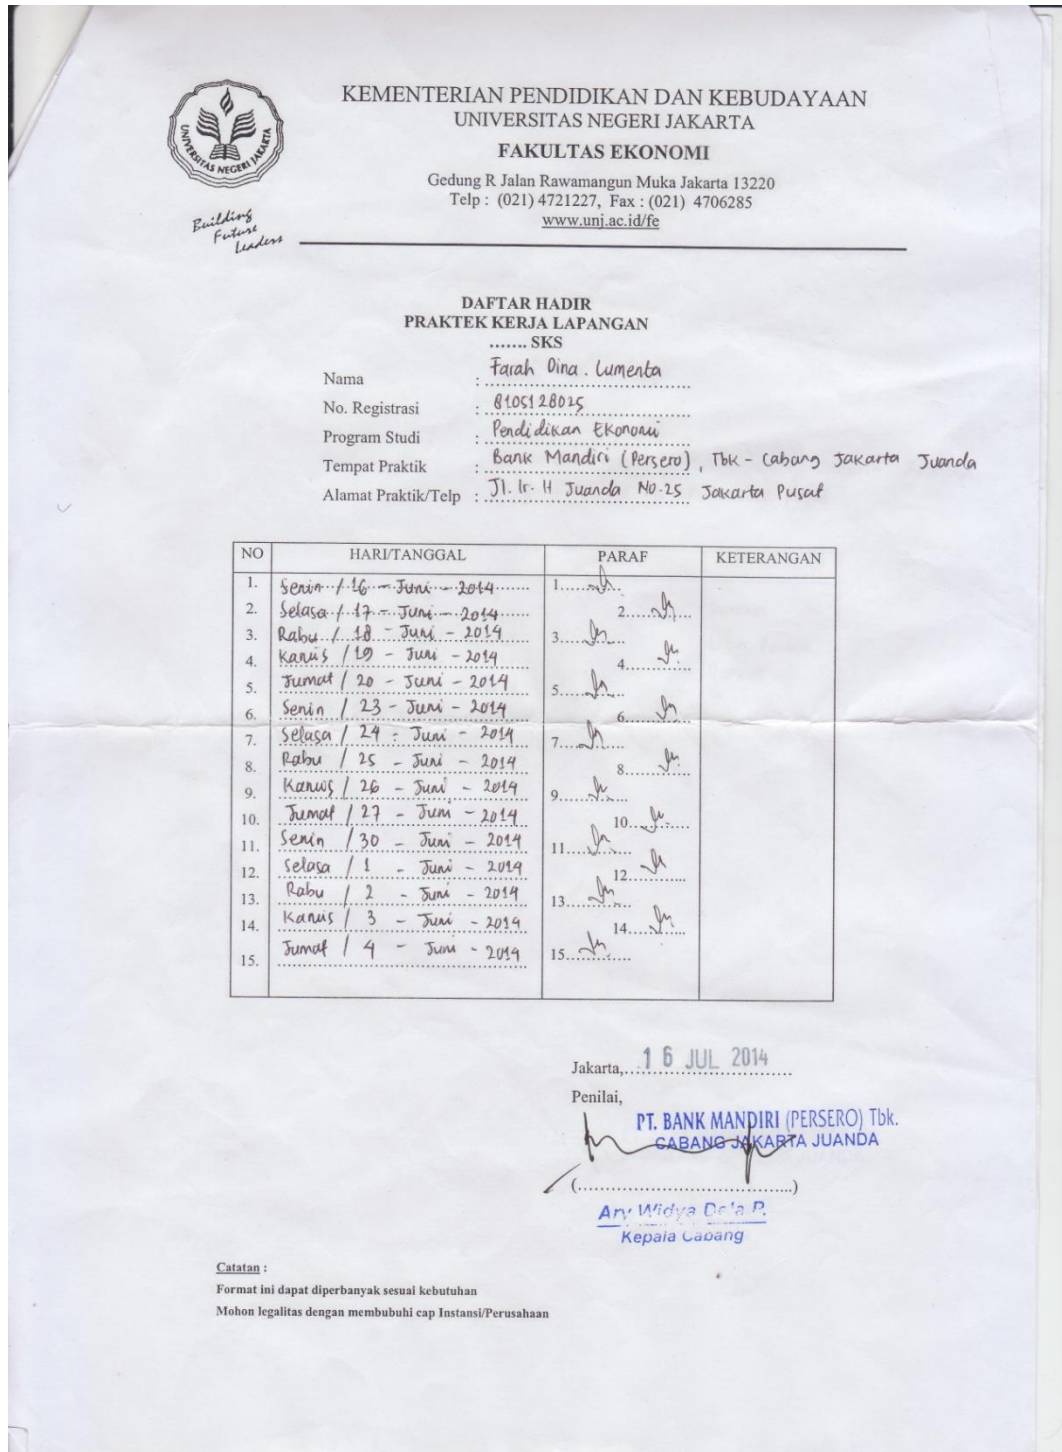 KEMENTERIAN PENDIDIKAN DAN KEBUDAYAAN
UNIVERSITAS NEGERI JAKARTA
FAKULTAS EKONOMI
Gedung R Jalan Rawamangun Muka Jakarta 13220
Telp : (021) 4721227, Fax : (021) 4706285
www.unj.ac.id/fe
UNIVERSITAS NEGERI JAKARTA
Building
Future
Leaders
DAFTAR HADIR
PRAKTEK KERJA LAPANGAN
....... SKS
Nama : Farah Dina. Lumenta
No. Registrasi : 8105128025
Program Studi : Pendidikan Ekonomi
Tempat Praktik : Bank Mandiri (Persero), Tbk - Cabang Jakarta Juanda
Alamat Praktik/Telp : Jl. Ir. H Juanda No. 25 Jakarta Pusat
NO HARI/TANGGAL PARAF KETERANGAN
1. Senin / 16 - Juni - 2014 1.
2. Selasa / 17 - Juni - 2014 2.
3. Rabu / 18 - Juni - 2014 3.
4. Kamis / 19 - Juni - 2014 4.
5. Jumat / 20 - Juni - 2014 5.
6. Senin / 23 - Juni - 2014 6.
7. Selasa / 24 - Juni - 2014 7.
8. Rabu / 25 - Juni - 2014 8.
9. Kamis / 26 - Juni - 2014 9.
10. Jumat / 27 - Juni - 2014 10.
11. Senin / 30 - Juni - 2014 11.
12. Selasa / 1 - Juni - 2014 12.
13. Rabu / 2 - Juni - 2014 13.
14. Kamis / 3 - Juni - 2014 14.
15. Jumat / 4 - Juni - 2014 15.
Jakarta, 16 JUL 2014
Penilai,
PT. BANK MANDIRI (PERSERO) Tbk.
CABANG JAKARTA JUANDA
(....................................)
Ary Widya P.
Kepala Cabang
Catatan :
Format ini dapat diperbanyak sesuai kebutuhan
Mohon legalitas dengan membubuhi cap Instansi/Perusahaan